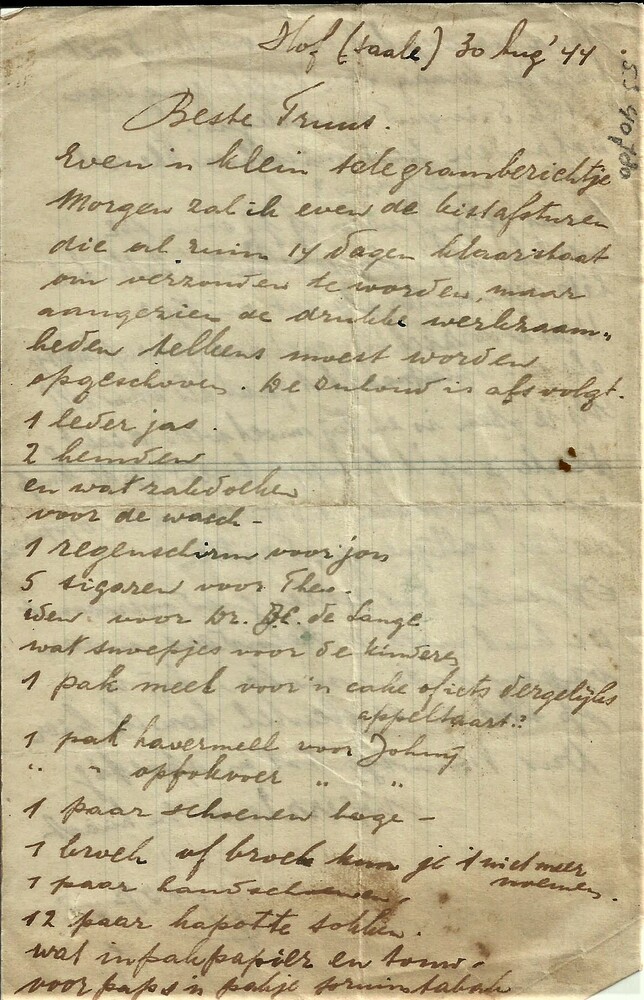 Hof (Saale) 30 Aug' 44
Beste Truus.
Even 'n klein telegramberichtje
Morgen zal ik even de kist afsturen
die al ruim 14 dagen klaarstaat
om verzonden te worden, maar
aangezien de drukke werkzaam„
heden telkens moest worden
opgeschoven. De inhoud is als volgt.
1 leder jas.
2 hemden
en wat zakdoeken
voor de wasch -
1 regenschirm voor jou
5 sigaren voor Theo.
idem voor Dr. de Lange
wat snoepjes voor de kinderen
1 pak meel voor 'n cake of iets dergelijks
appeltaart?
1 pak havermeel voor Johny
" " opfokvoer " "
1 paar schoenen hoge -
1 broek of broek kun je 't niet meer
noemen.
1 paar handschoenen,
12 paar kapotte sokken.
wat inpakpapier en touw.
voor paps 'n pakje pruimtabak